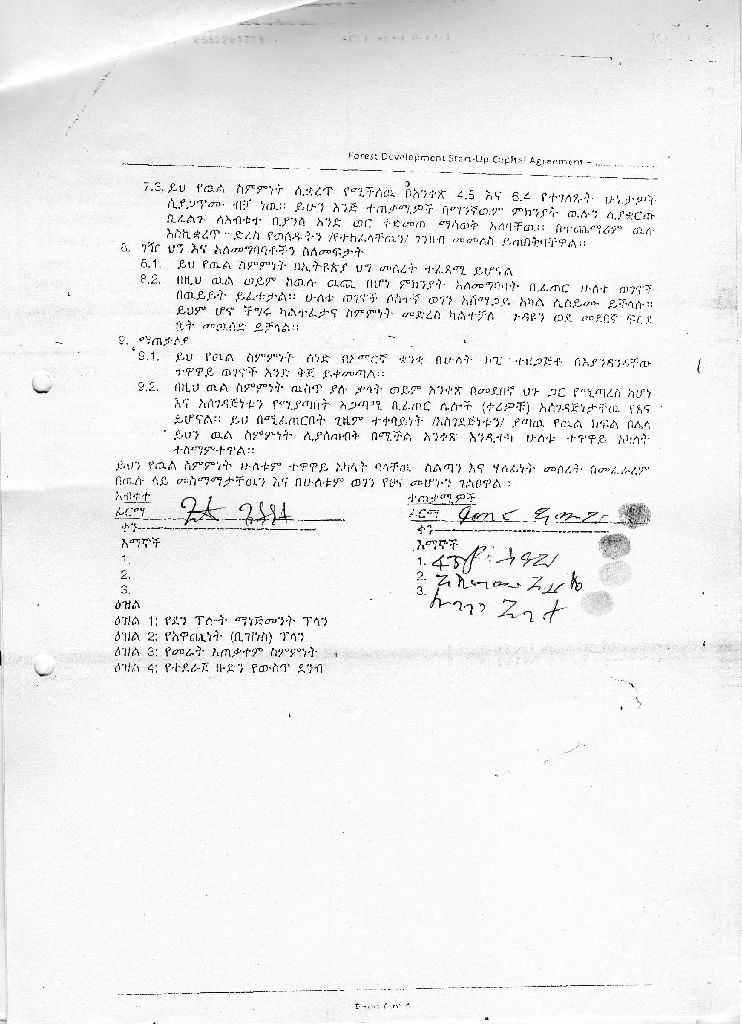 Forest Development Start-Up Capital Agreement –
7.3. ይህ የዉል ስምምነት ሊቋረጥ የሚችለዉ በአንቀጽ 4.5 እና 6.4 የተገለጹት ሁኔታዎች
ሲያጋጥሙ ብቻ ነዉ። ይሁን እንጅ ተጠቃሚዎች በማንኛዉም ምክንያት ዉሉን ሲያቋርጡ
ቢፈልጉ ለአብቁተ ቢያንስ አንድ ወር ቀድመዉ ማሳወቅ አለባቸዉ። በተጨማሪም ዉሉ
እስኪቋረጥ ድረስ የወሰዱትን /የተከፈላቸዉን/ ገንዘብ መመለስ ይጠበቅባቸዋል።
8. ገዥ ህግ እና አለመግባባቶችን ስለመፍታት
8.1. ይህ የዉል ስምምነት በኢትዮጵያ ህግ መሰረት ተፈጻሚ ይሆናል
8.2. በዚህ ዉል ወይም ከዉሉ ዉጪ በሆነ ምክንያት አለመግባባት ቢፈጠር ሁለቱ ወገኖች
በዉይይት ይፈቱታል። ሁለቱ ወገኖች ሶስተኛ ወገን አሸማጋይ አካል ሊሰይሙ ይችላሉ።
ይህም ሆኖ ችግሩ ካልተፈታና ስምምነት መድረስ ካልተቻለ ጉዳዩን ወደ መደበኛ ፍርድ
ቤት መዉሰድ ይቻላል።
9. ማጠቃለያ
9.1. ይህ የዉል ስምምነት ሰነድ በአማርኛ ቋንቋ በሁለት ኮፒ ተዘጋጅቶ በእያንዳንዳቸው
ተዋዋይ ወገኖች አንድ ቅጅ ይቀመጣል።
9.2. በዚህ ዉል ስምምነት ዉስጥ ያሉ ቃላት ወይም አንቀጽ በመደበኛ ህጉ ጋር የሚጣረስ ከሆነ
እና አስገዳጅነቱን የሚያጣበት አጋጣሚ ቢፈጠር ሌሎች (ቀሪዎቹ) አስገዳጅነታቸዉ የጸና
ይሆናል። ይህ በሚፈጠርበት ጊዜም ተቀባይነት /አስገደጅነቱን/ ያጣዉ የዉል ክፍል በሌላ
ይህን ዉል ስምምነት ሊያስጠብቅ በሚችል አንቀጽ እንዲተካ ሁለቱ ተዋዋይ አካላት
ተስማምተዋል።
ይህን የዉል ስምምነት ሁለቱም ተዋዋይ አካላት ባላቸዉ ስልጣን እና ሃላፊነት መሰረት በመፈራረም
በዉሉ ላይ መስማማታቸዉን እና በሁለቱም ወገን የፀና መሆኑን ገልፀዋል።
አብቁተ ተጠቃሚዎች
ፊርማ ፊርማ
ቀን ቀን
እማኞች እማኞች
1. 1.
2. 2.
3. 3.
ዕዝል
ዕዝል 1: የደን ፕሎት ማነጅመንት ፕላን
ዕዝል 2: የአዋጪነት (ቢዝነስ) ፕላን
ዕዝል 3: የመሬት አጠቃቀም ስምምነት
ዕዝል 4: የተደራጀ ቡድን የውስጥ ደንብ